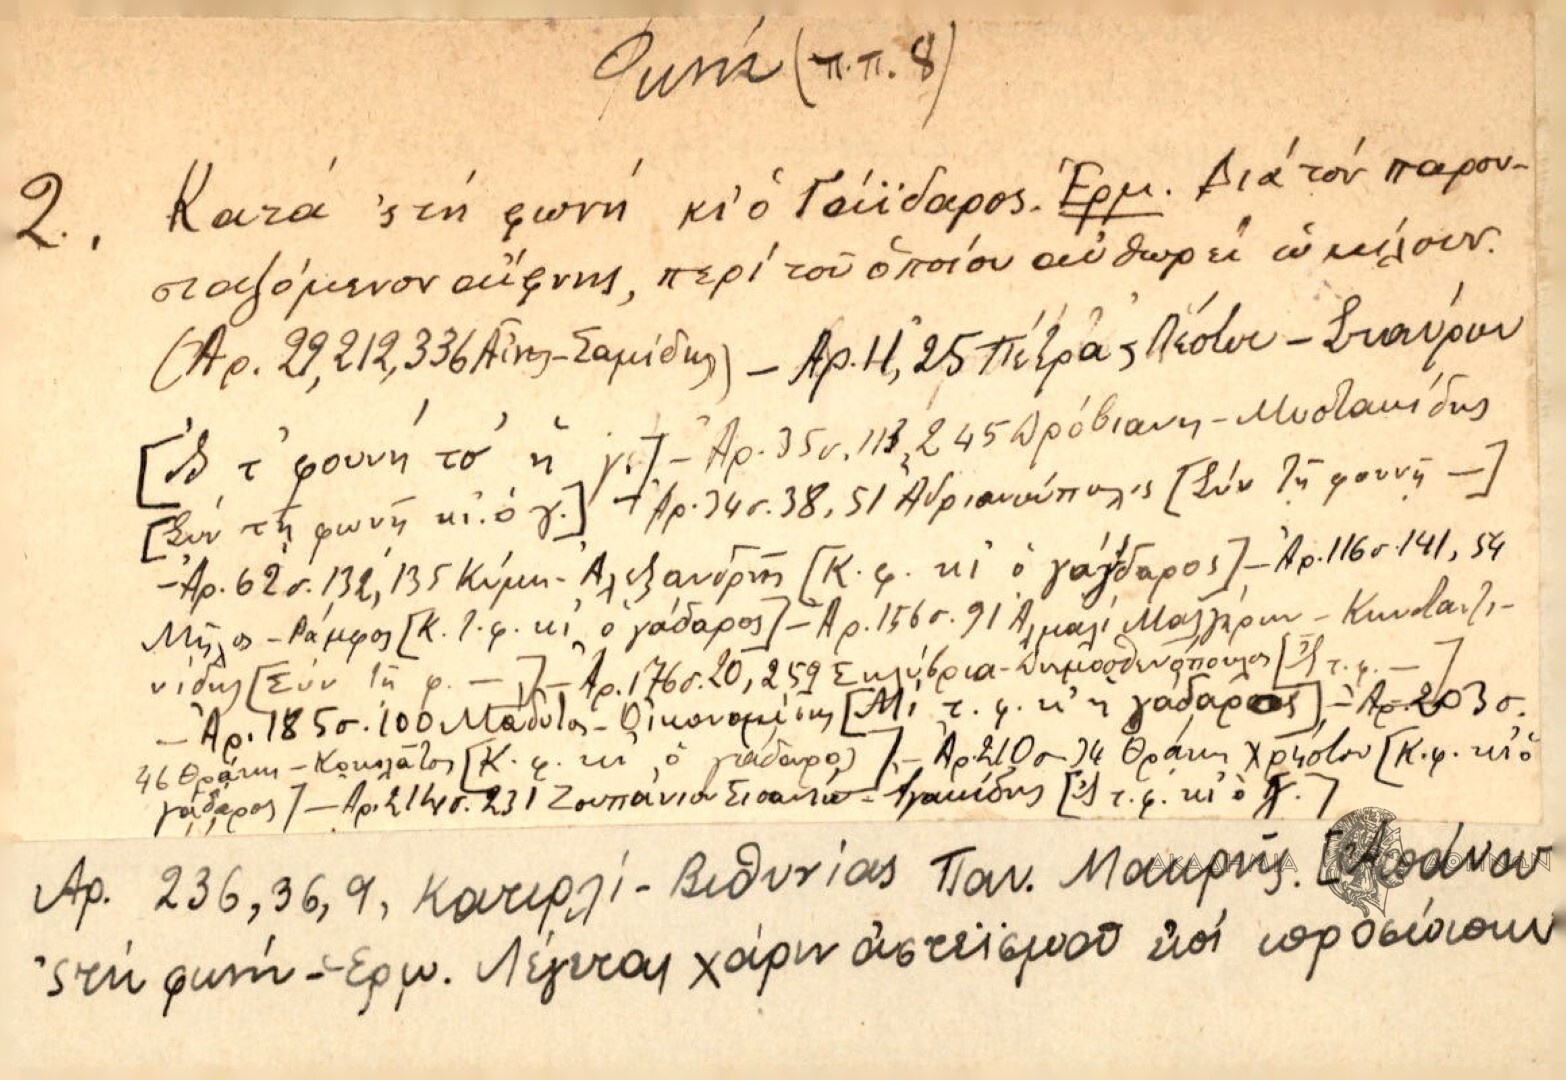 Φωνή (π.π. 8)
2. Κατά 'ς τή φωνή κι' ὁ Γάϊδαρος. Ἑρμ. Διά τόν παρου-
σιαζόμενον αἴφνης, περί τοῦ ὁποίου αὐθωρεί ὡμίλουν.
(Ἀρ. 29, 212, 336 Αἶνος - Σαμίδης) - Ἀρ. 11, 25 Πέτρα Λέσβου - Σταύρου
['Σ τ' φουνή τσ' ἡ γ.] - Ἀρ. 35 σ. 113, 245 Δρόβιανη - Μυστακίδης
[Σύν τῇ φωνῇ κι' ὁ γ.] - Ἀρ. 34 σ. 38, 51 Ἀδριανούπολις [Σύν τῇ φουνῇ —]
- Ἀρ. 62 σ. 132, 135 Κύμη - Ἀλεξανδρῆς [Κ. φ. κι' ὁ γάδαρος] - Ἀρ. 116 σ. 141, 54
Μῆλος - Ράμφος [Κ. τ. φ. κι' ὁ γάδαρος] - Ἀρ. 156 σ. 91 Μαλγάρων - Κωνσταντι-
νίδης [Σύν τῇ φ. —] - Ἀρ. 176 σ. 20, 259 Σηλύβρια - Δημοσθενόπουλος ['Σ τ. φ. —]
- Ἀρ. 185 σ. 100 Μάδυτος - Οἰκονομίδης [Μέ τ. φ. κι' ἡ γάδαρος] - Ἀρ. 203 σ.
46 Θράκη - [Κ. φ. κι' ὁ γάδαρος] - Ἀρ. 210 σ. 34 Θράκη Χρήστου [Κ. φ. κι' ὁ
γάδαρος] - Ἀρ. 214 σ. 231 Ζουπάνιον Σισανίου - ['Σ τ. φ. κι' ὁ γ.]
Ἀρ. 236, 36, 9, Κατιρλί - Βιθυνίας Παν. Μακρῆς. [Ἀπάνου
'ς τή φωνή - Ἑρμ. Λέγεται χάριν ἀστεϊσμοῦ ἐπί προσώπων
ΑΚΑΔΗΜΙΑ ΑΘΗΝΩΝ